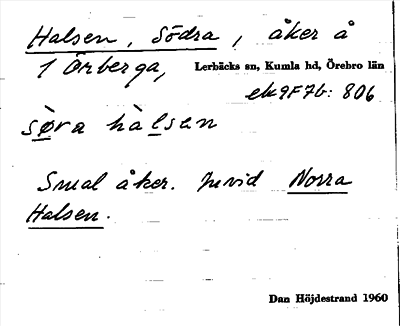 Halsen, Södra, åker å
1 Örberga, Lerbäcks sn, Kumla hd, Örebro län
ek 9F7b: 806
søra hàlsen
Smal åker. Invid Norra
Halsen.
Dan Höjdestrand 1960